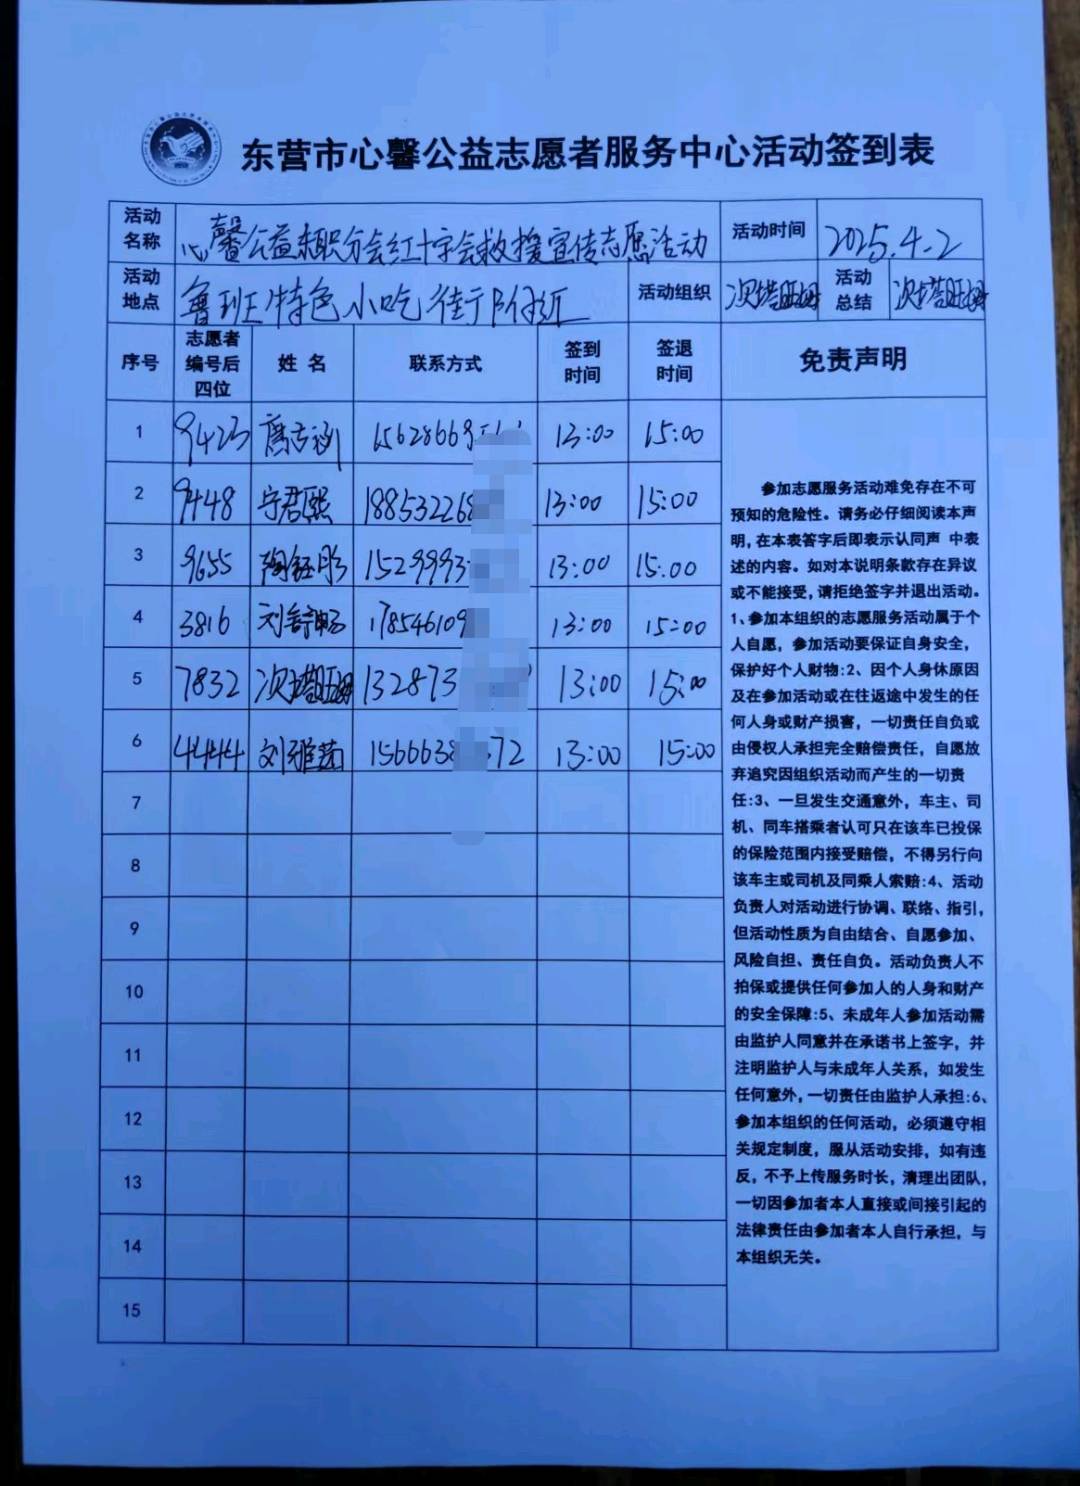 东营市心馨公益志愿者服务中心活动签到表
活动名称 心馨公益东职分会红十字会救援宣传志愿活动 活动时间 2025.4.2
活动地点 鲁班特色小吃街附近 活动组织 次塔旺姆 活动总结 次塔旺姆
序号 志愿者编号后四位 姓名 联系方式 签到时间 签退时间 免责声明
1 9423 15628669 13:00 15:00
2 9448 宁君熙 188532268 13:00 15:00
3 9655 陶钰彤 1529993 13:00 15:00
4 3816 刘舒畅 178546109 13:00 15:00
5 7832 次塔旺姆 132873 13:00 15:00
6 4444 刘雅茹 1566638 72 13:00 15:00
7
8
9
10
11
12
13
14
15
参加志愿服务活动难免存在不可
预知的危险性。请务必仔细阅读本声
明,在本表签字后即表示认同声 中表
述的内容。如对本说明条款存在异议
或不能接受,请拒绝签字并退出活动。
1、参加本组织的志愿服务活动属于个
人自愿，参加活动要保证自身安全，
保护好个人财物:2、因个人身休原因
及在参加活动或在往返途中发生的任
何人身或财产损害，一切责任自负或
由侵权人承担完全赔偿责任，自愿放
弃追究因组织活动而产生的一切责
任:3、一旦发生交通意外，车主、司
机、同车搭乘者认可只在该车已投保
的保险范围内接受赔偿，不得另行向
该车主或司机及同乘人索赔:4、活动
负责人对活动进行协调、联络、指引，
但活动性质为自由结合、自愿参加、
风险自担、责任自负。活动负责人不
拍保或提供任何参加人的人身和财产
的安全保障:5、未成年人参加活动需
由监护人同意并在承诺书上签字，并
注明监护人与未成年人关系，如发生
任何意外,一切责任由监护人承担:6、
参加本组织的任何活动，必须遵守相
关规定制度，服从活动安排，如有违
反，不予上传服务时长，清理出团队，
一切因参加者本人直接或间接引起的
法律责任由参加者本人自行承担，与
本组织无关。